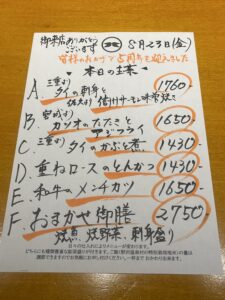 御来店ありがとうございます
8月23日(金)
皆様のおかげで5周年を迎えました
本日の主菜
A. 三重より タイの刺身と 1760-
信州サーモン味噌焼き
B. カツオのたたきと 1650-
アジフライ
C. 三重より タイのかぶと煮 1430-
D. 重ねロースのとんかつ 1430-
E. 和牛のメンチカツ 1650-
F. おまかせ御膳 2750-
刺身盛り
日々の仕入れによりメニューが変わります。